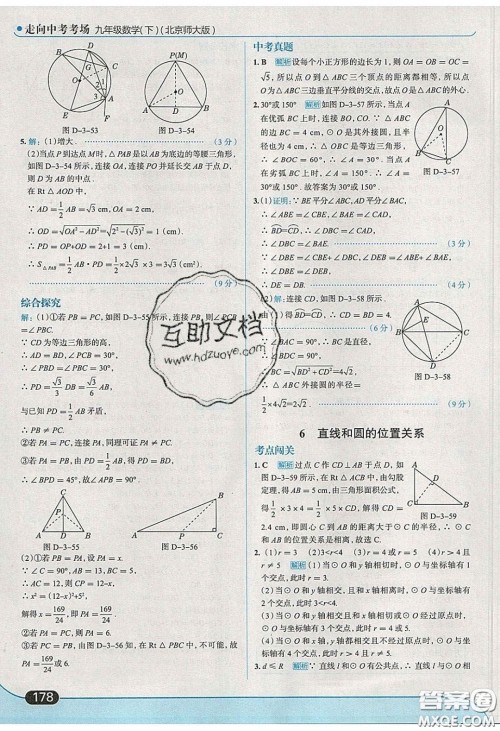 走向中考考场 九年级数学(下)(北京师大版)
图 D-3-53
图 D-3-54
5. 解：(1)增大. (3 分)
(2)当点 P 到达点 M 时，△PAB 是以 AB 为底边的等腰三角形，
如图 D-3-54 所示，连接 OA，连接 PO 并延长交 AB 于点 D，
则 D 为 AB 的中点.
在 Rt△AOD 中，
∵ AD = 1/2 AB = √3 cm，OA = 2 cm，
∴ OD = √(OA² − AD²) = √(2² − (√3)²) = 1(cm).
∴ PD = OP + OD = 2 + 1 = 3(cm).
∴ S△PAB = 1/2 AB · PD = 1/2 × 2√3 × 3 = 3√3 (cm²).
(9 分)
综合探究
解：(1)①若 PB = PC，如图 D-3-55 所示，连接 PB，则∠PCB
= ∠PBC.
∵ CD 为等边三角形的高，
∴ AD = BD，∠PCB = 30°，
∴ ∠PBD = ∠PBC = 30°，
∴ PD = √3/3 DB = √3/6 AB，
与已知 PD = 1/2 AB 矛盾，
∴ PB ≠ PC.
②若 PA = PC，连接 PA，同理可证 PA ≠ PC.
③若 PA = PB，由 PD = 1/2 AB，得 PD = AD，
∴ ∠BPD = 45°，故∠APB = 90°.
图 D-3-55
图 D-3-56
(2)①若 PB = PA，设 PA = x.
∵ ∠C = 90°，AB = 13，BC = 5，
∴ AC = 12，则 CP = 12 − x，
∴ x² = (12 − x)² + 5²，
解得 x = 169/24，即 PA = 169/24.
②若 PA = PC，则 PA = 6.
③若 PC = PB，由图 D-3-56 知，在 Rt△PBC 中，不可能存
故 PA = 6 或 169/24.
178
中考真题
1. B 解析 设每个小正方形的边长为 1，则 OA = OB = OC =
√5，所以点 O 到△ABC 三个顶点的距离都相等，所以点 O
是△ABC 三边垂直平分线的交点，故点 O 是△ABC 的外心.
2. 30°或 150° 解析 如图 D-3-57 所示，当点 A
在优弧 BC 上时，连接 OB，OC. ∵ △ABC
的边 BC = 4 cm，⊙O 是其外接圆，且半
径也为 4 cm，∴ △OBC 是等边三角形，
∴ ∠BOC = 60°，∴ ∠A = 30°. 若点 A
图 D-3-57
= 150°. 故答案为 30°或 150°.
3. (1)证明：∵ BE 平分∠ABC，AD 平分∠BAC，
∴ ∠ABE = ∠CBE，∠BAE = ∠CAD，
∴ ∠DBC = ∠BAE.
(3 分)
∴ ∠DBE = ∠DEB，
∴ DE = DB. (4 分)
(2)解：连接 CD，如图 D-3-58 所示.
(6 分)
图 D-3-58
∴ BC = √(BD² + CD²) = 4√2，
∴ △ABC 外接圆的半径 =
1/2 × 4√2 = 2√2. (9 分)
6 直线和圆的位置关系
考点闯关
1. C 解析 过点 C 作 CD⊥AB 于点 D，如图
D-3-59 所示，在 Rt△ABC 中，由勾股
定理，得 AB = 5 cm，由三角形面积公式，
得 1/2 × 3 × 4 = 1/2 × 5 × CD，∴ CD =
图 D-3-59
2.4 cm，即圆心 C 到 AB 的距离大于⊙C 的半径，∴ ⊙C
和 AB 的位置关系是相离.
2. (1)r = 3 (2)3<r<4 (3)r = 4 或 r = 5 (4)r > 4 且
r ≠ 5 解析 (1)当⊙O 和 x 轴相切时，⊙O 与坐标轴有 1
个交点，此时 r = 3.
(2)当⊙O 和 y 轴相交，且和 x 轴相离时，⊙O 与坐标轴有
2 个交点，此时 3<r<4.
(3)当⊙O 和 y 轴相切或⊙O 经过原点时，⊙O 与坐标轴有
3 个交点，此时 r = 4 或 r = 5.
(4)当⊙O 和 y 轴、x 轴都相交且不经过原点时，⊙O 与坐
标轴有 4 个交点，此时 r > 4 且 r ≠ 5.
3. d ≤ R 解析 ∵ 直线 l 和⊙O 有公共点，∴ 直线 l 与⊙O
互助文档
www.hdzuoye.com
答案圈
MXQE.COM